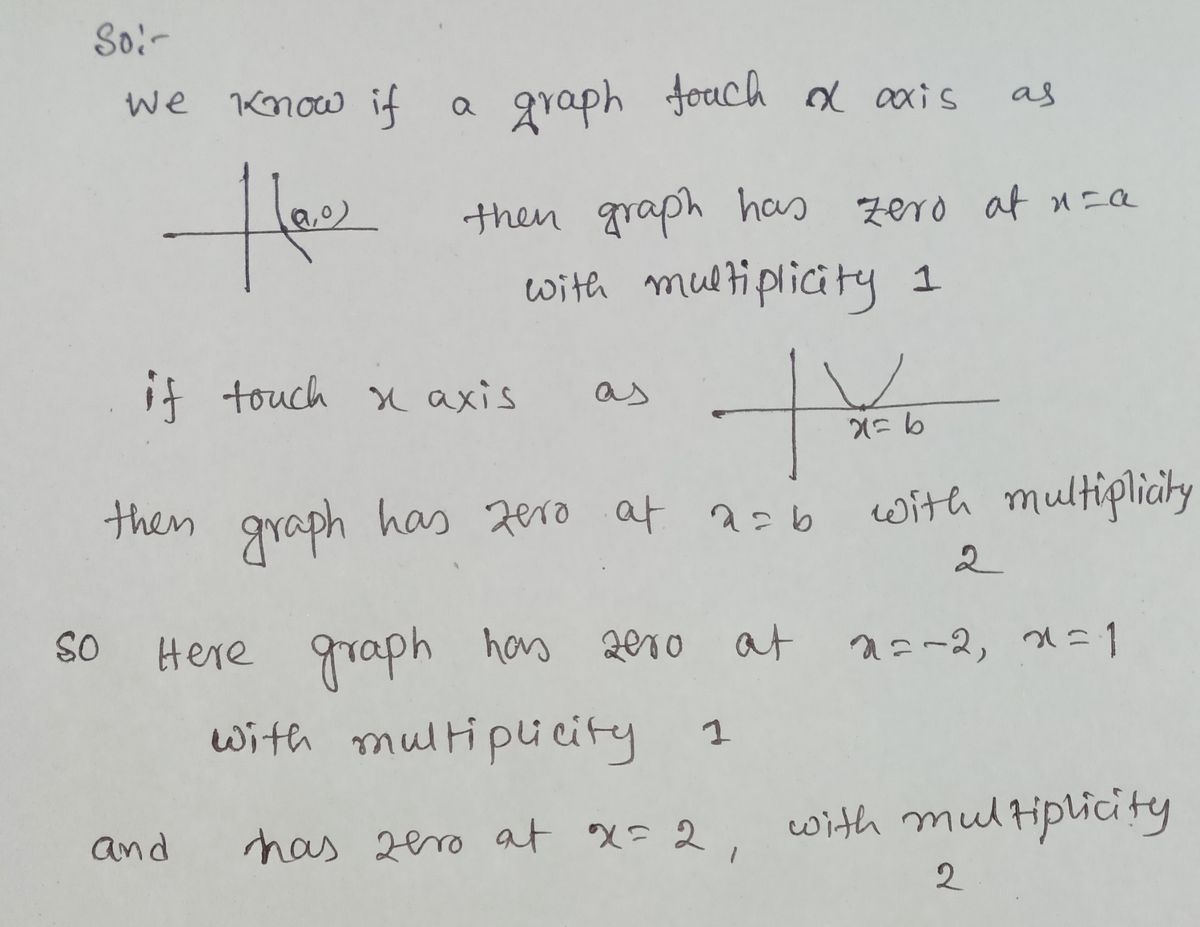 So:-
we know if a graph touch x axis as
(a,0) then graph has zero at x=a
with multiplicity 1
if touch x axis as
x=b
then graph has zero at x=b with multiplicity
2
so Here graph has zero at x=-2, x=1
with multiplicity 1
and has zero at x=2, with multiplicity
2